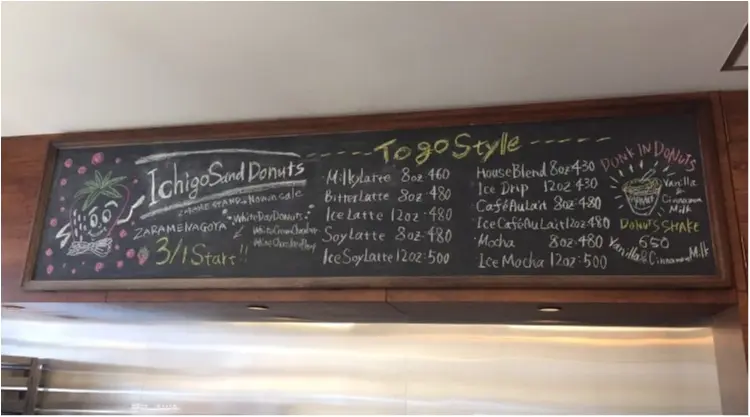 Togo Style
Ichigo Sand Donuts
Now on sale
ZARAMENAGOYA
3/1 Start!!
White Day Donuts
White Cream Chocolate
White Chocolate Berry
Milky Latte 8oz 460
Bitter Latte 8oz 480
Ice Latte 12oz 480
Soy Latte 8oz 480
Ice Soy Latte 12oz 500
House Blend 8oz 430
Ice Drip 12oz 430
Café Au Lait 8oz 480
Ice Café Au Lait 12oz 480
Mocha 8oz 480
Ice Mocha 12oz 500
DUNK IN DONUTS
Vanilla
or
Cinnamon
Milk
DONUTS SHAKE
650
Vanilla & Cinnamon Milk